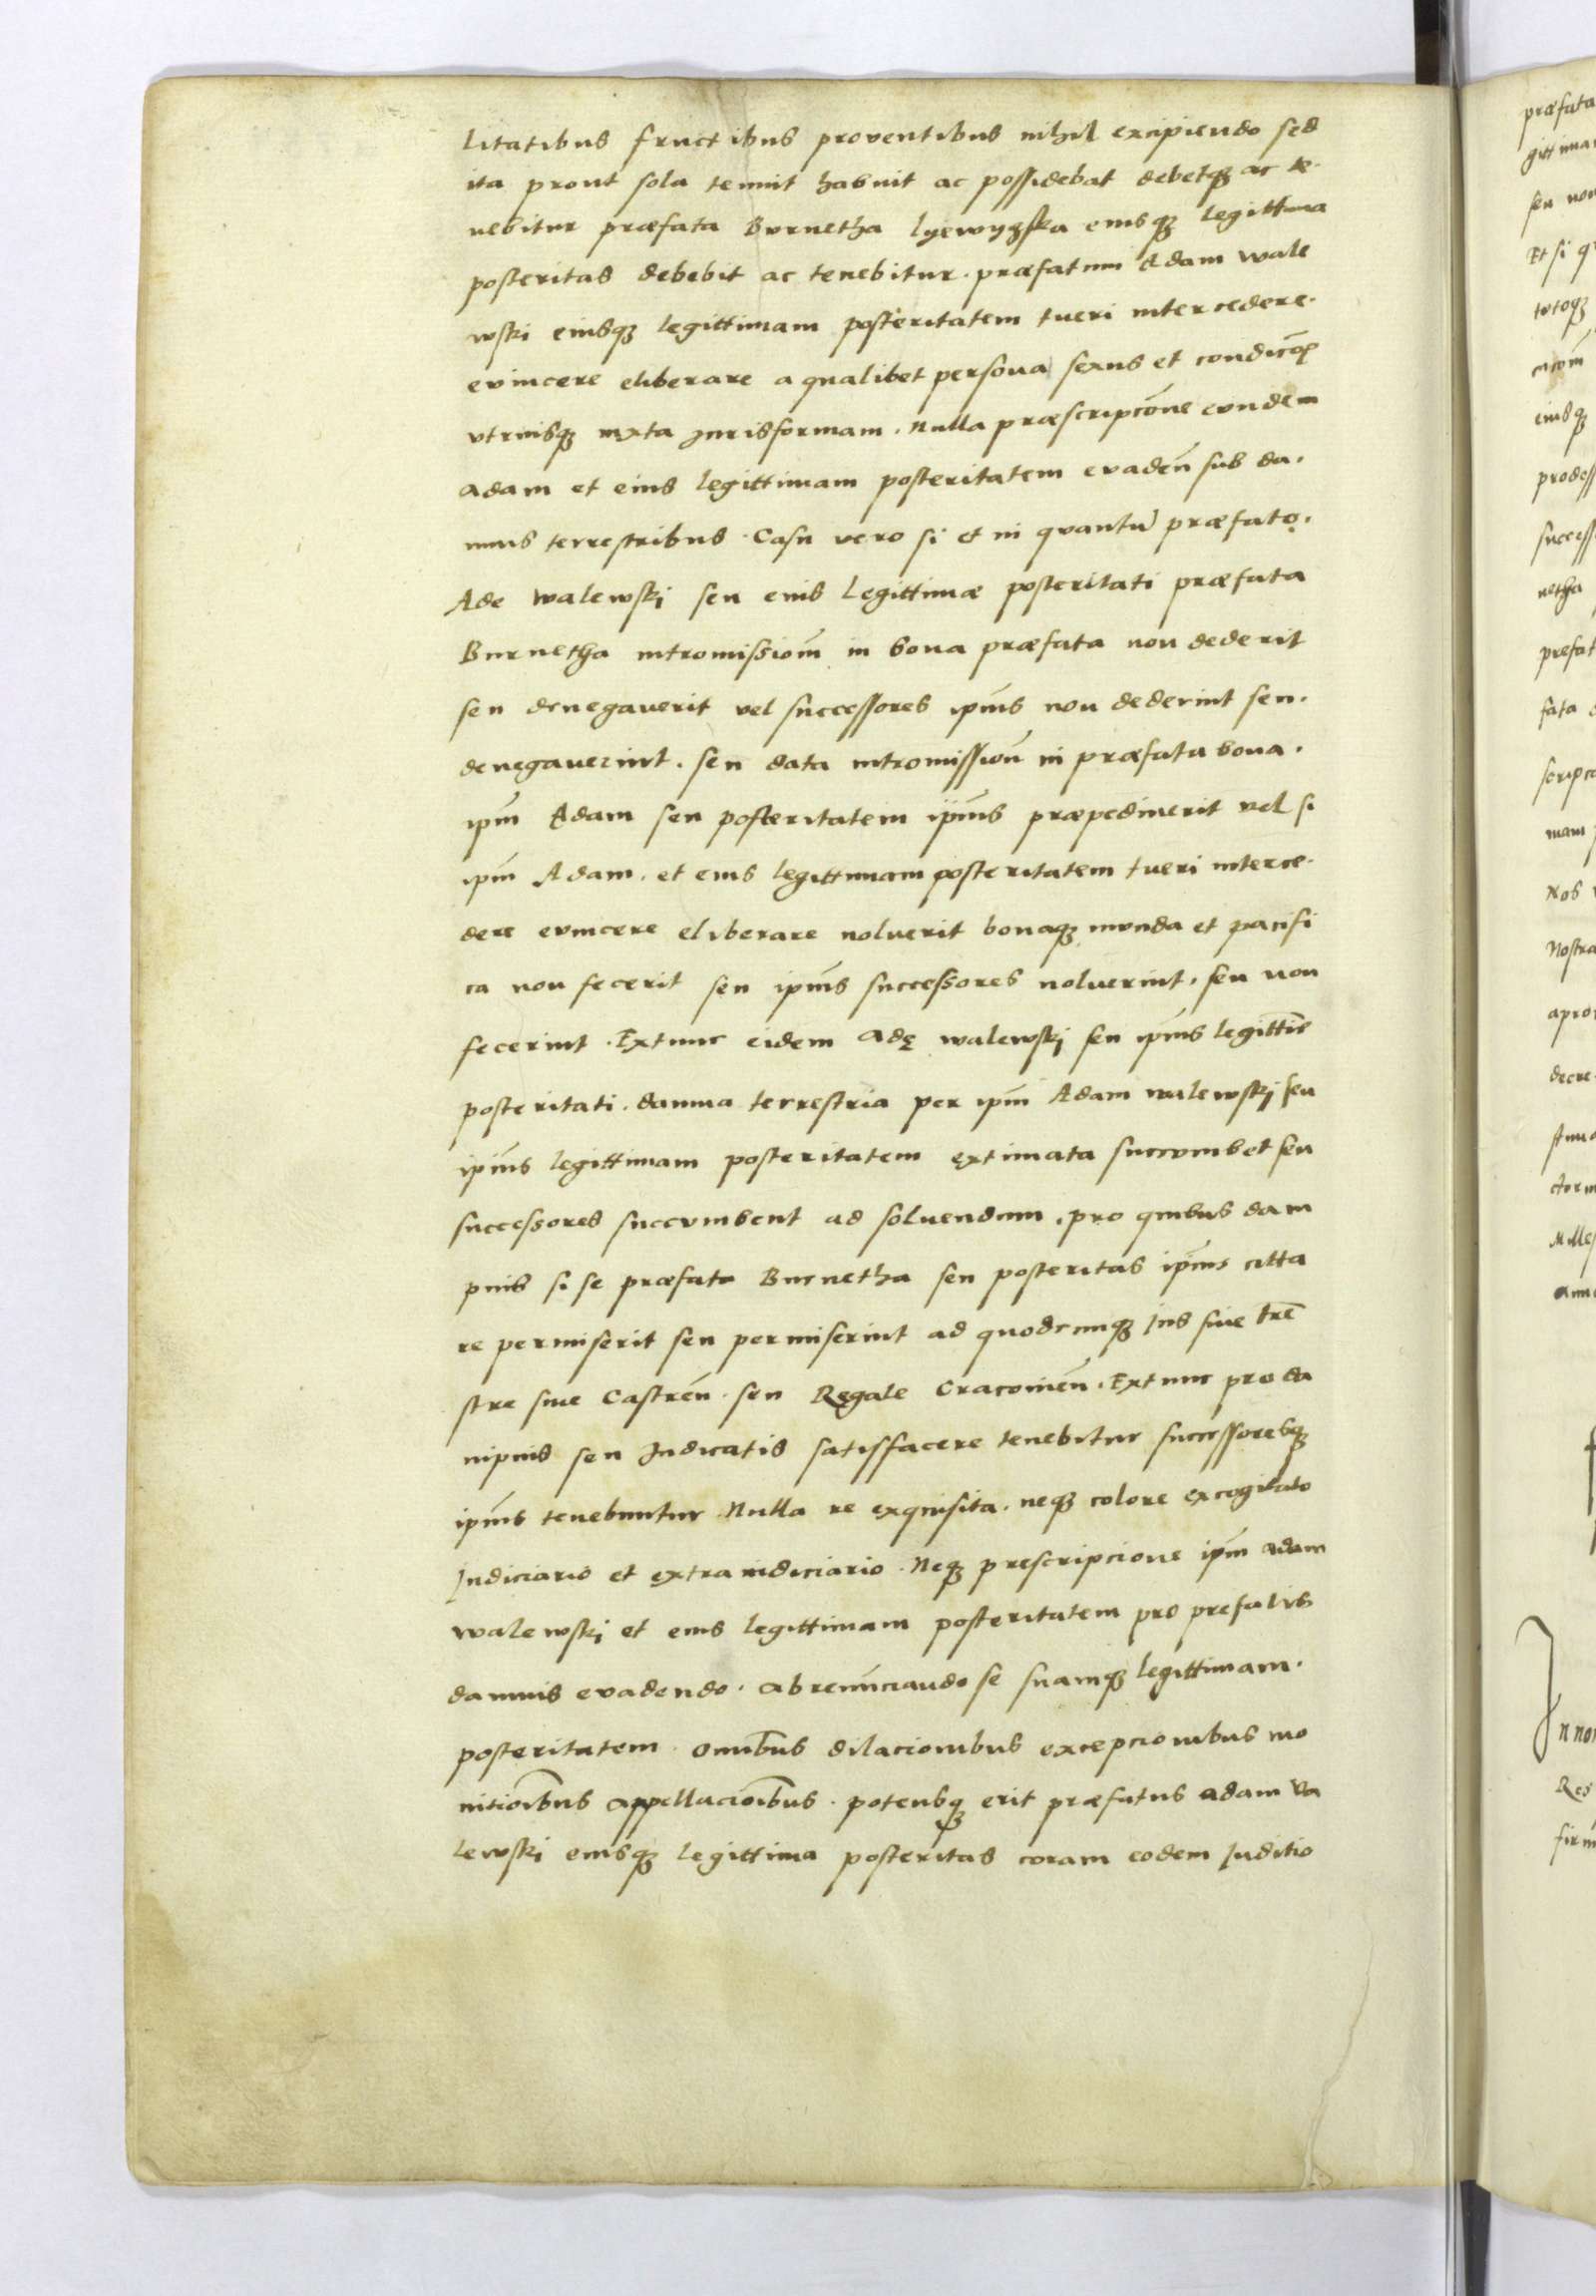 litatibus fructibus proventibus nihil excipiendo sed
ita prout sola tenuit habuit ac possidebat debetq₃ ac te-
nebitur præfata Burnetha lyewyzska eiusq₃ legittima
posteritas debebit ac tenebitur. præfatum Adam wale
wski eiusq₃ legittimam posteritatem tueri intercedere.
evincere eliberare a qualibet persona sexus et condicõ
utriusq₃ iuxta Jurisformam. Nulla præscripcõne eundem
adam et eius legittimam posteritatem evadeñ sub da.
mnis terrestribus. Casu vero si et in quantũ præfato.
Ade walewskj seu eius legittimæ posteritati præfata
Burnetha intromissiom̃ in bona præfata non dederit
seu denegaverit vel successores ipius̃ non dederint seu.
denegaverint. seu data intromissioñ in præfata bona.
ipm̃ Adam seu posteritatem ipius̃ præpediuerit vel si
ipm̃ Adam. et eius legittimam posteritatem tueri interce-
dere evincere eliberare noluerit bonaq₃ munda et pacifi
ca non fecerit seu ipius̃ successores noluerint. seu non
fecerint. Extunc eidem Adę walewskj seu ipius̃ legittiẽ
posteritati. damna terrestria per ipm̃ Adam walewskj seu
ipius̃ legittimam posteritatem extimata succumbet seu
successores succumbent ad soluendum. pro quibus dam
pnis si se præfata Burnetha seu posteritas ipius̃ citta
re permiserit seu permiserint ad quodcunq₃ Jus sive trẽ
stre sive Castreñ. seu Regale Cracovieñ. Extunc pro da
mpnis seu Judicatis satisfacere tenebitur successoresq₃
ipius̃ tenebuntur Nulla re exquisita. neq₃ colore excogitato
Judiciario et extraiudiciario. Neq₃ prescripcione ipm̃ adam
walewskj et eius legittimam posteritatem pro prefatis
damnis evadendo. abrenũciando se suamq₃ legittimam.
posteritatem. omib̃us dilacionibus excepcionibus mo
nitioib̃us appellacioib̃us. potensq₃ erit præfatus adam va
lewski eiusq₃ legittima posteritas coram eodem Juditio
præfata
seu non
Et si
totoq₃
eiusq₃
netha
prefat
fata
mam
Nos
Nostra
decre
Mille
anno
Res
firm